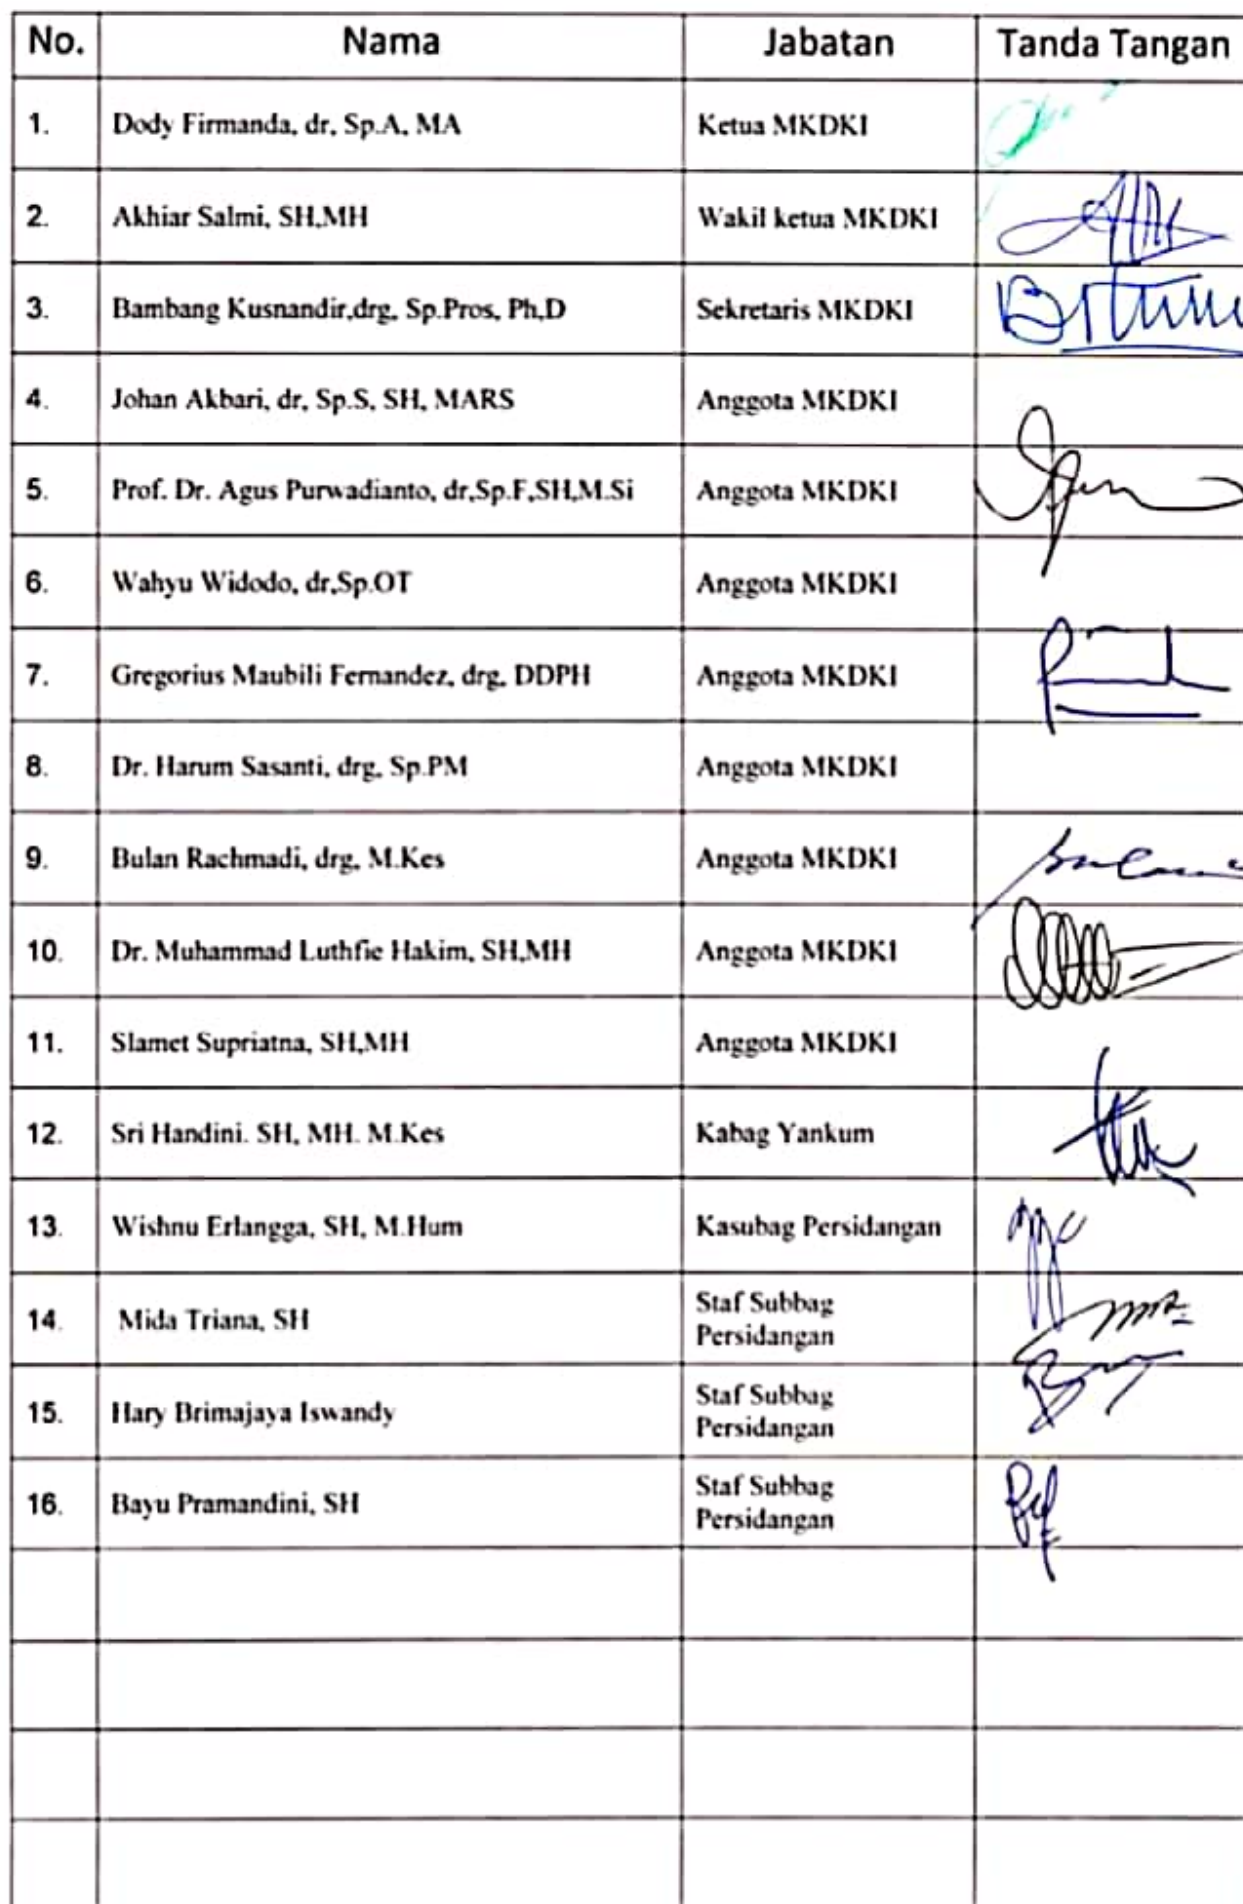 No. Nama Jabatan Tanda Tangan
1. Dody Firmanda, dr, Sp.A, MA Ketua MKDKI
2. Akhiar Salmi, SH,MH Wakil ketua MKDKI
3. Bambang Kusnandir,drg, Sp.Pros, Ph,D Sekretaris MKDKI
4. Johan Akbari, dr, Sp.S, SH, MARS Anggota MKDKI
5. Prof. Dr. Agus Purwadianto, dr,Sp.F,SH,M.Si Anggota MKDKI
6. Wahyu Widodo, dr,Sp.OT Anggota MKDKI
7. Gregorius Maubili Fernandez, drg, DDPH Anggota MKDKI
8. Dr. Harum Sasanti, drg, Sp.PM Anggota MKDKI
9. Bulan Rachmadi, drg, M.Kes Anggota MKDKI
10. Dr. Muhammad Luthfie Hakim, SH,MH Anggota MKDKI
11. Slamet Supriatna, SH,MH Anggota MKDKI
12. Sri Handini. SH, MH. M.Kes Kabag Yankum
13. Wishnu Erlangga, SH, M.Hum Kasubag Persidangan
14. Mida Triana, SH Staf Subbag
Persidangan
15. Hary Brimajaya Iswandy Staf Subbag
Persidangan
16. Bayu Pramandini, SH Staf Subbag
Persidangan